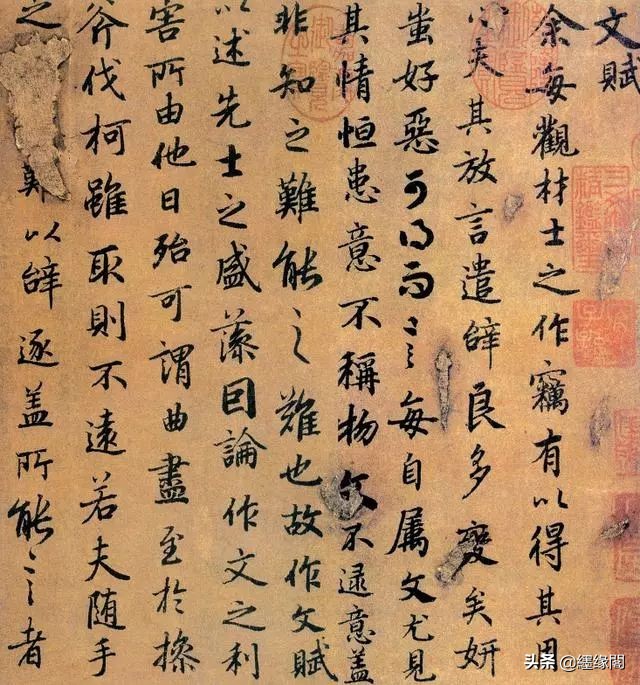 文賦
余每觀材士之作竊有以得其用
心夫其放言遣辭良多變矣妍
蚩好惡可得而言每自属文尤見
其情恒患意不稱物文不逮意盖
非知之難能之難也故作文賦
以述先士之盛藻因論作文之利
害所由他日殆可謂曲盡至於操
斧伐柯雖取則不遠若夫随手
之難以辭逐盖所能言者
三希堂精鑑璽
头条 @缘閣